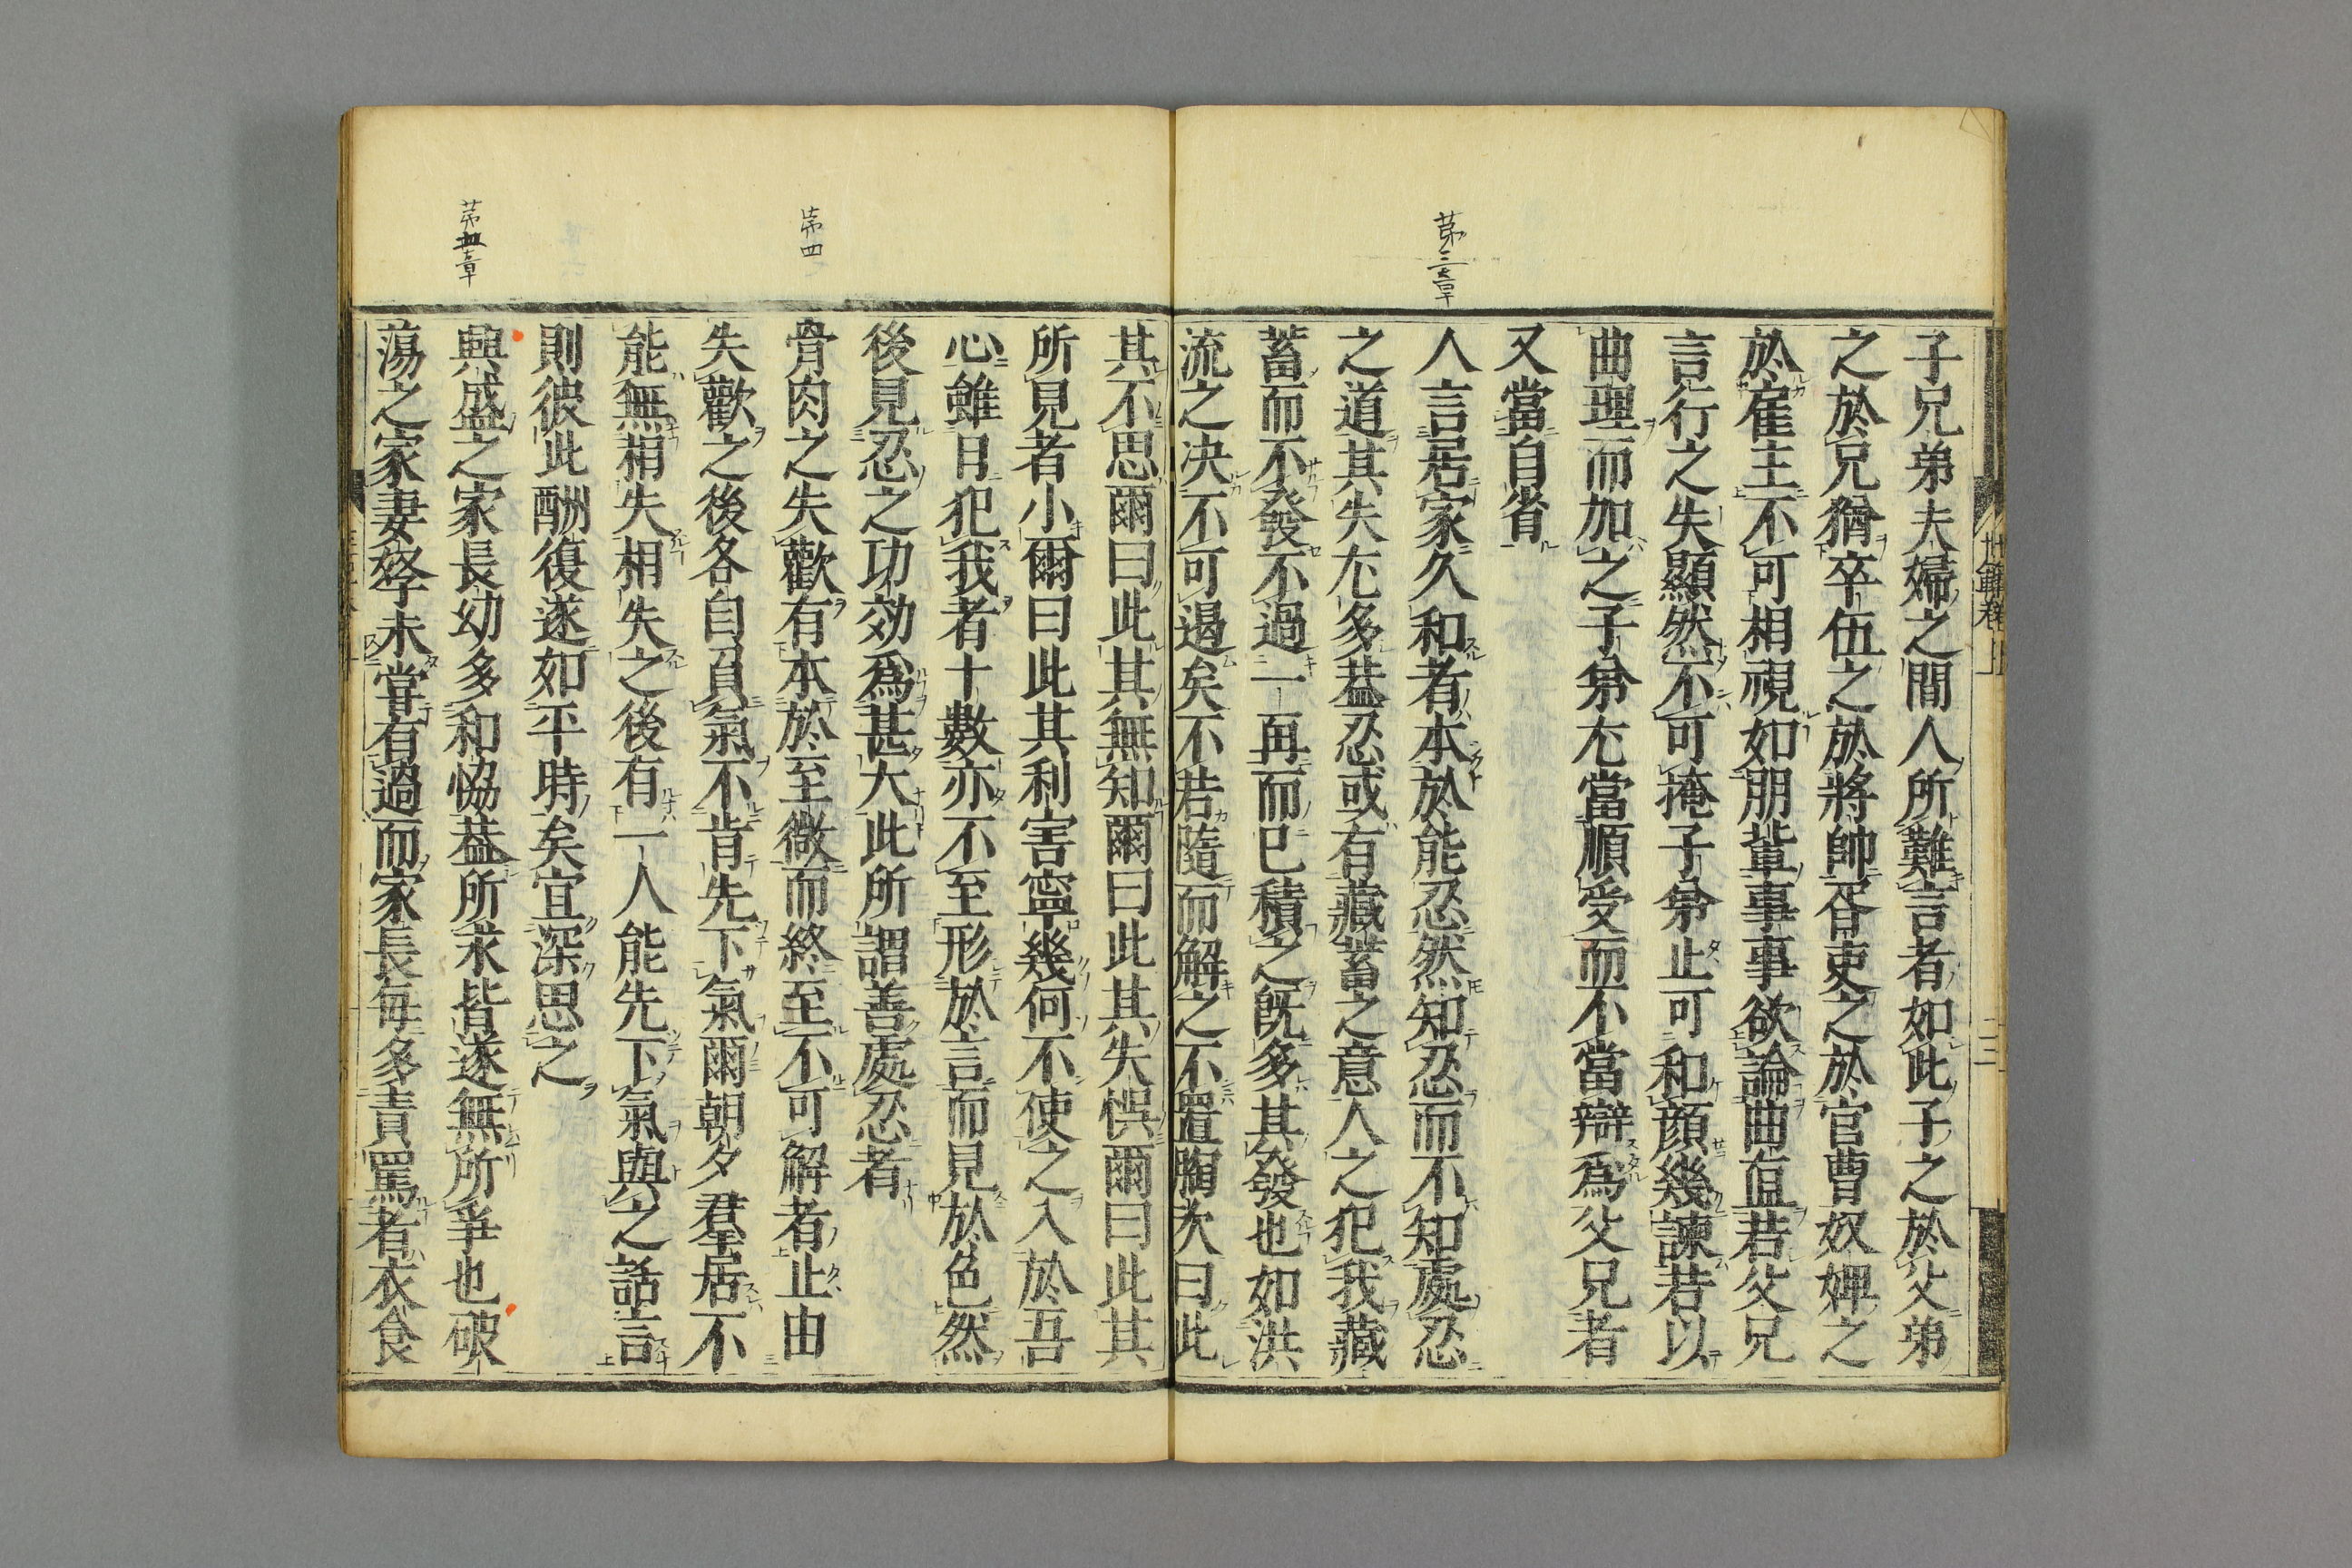 子兄弟夫婦之間人所難言者如此子之於父弟
之於兄猶卒伍之於將帥胥吏之於官曹奴婢之
於雇主不可相視如朋輩事事欲論曲直若父兄
言行之失顯然不可掩子弟止可和顔幾諫若以
曲理而加之子弟尤當順受而不當辯爲父兄者
又當自省
第三章
人言居家久和者本於能忍然知忍而不知處忍
之道其失尤多益忍或有藏蓄之意人之犯我藏
蓄而不發不過一再而已積之既多其發也如洪
流之决不可遏矣不若隨而解之不置胸次曰此
其不思爾曰此其無知爾曰此其失悞爾曰此其
所見者小爾曰此其利害寧幾何不使之入於吾
心雖日犯我者十數亦不至形於言而見於色然
後見忍之功効爲甚大此所謂善處忍者
第四
骨肉之失歡有本於至微而終至不可解者止由
失歡之後各自負氣不肯先下氣爾朝夕羣居不
能無相失相失之後有一人能先下氣與之話言
則彼此酬復遂如平時矣宜深思之
第五章
興盛之家長幼多和恊益所求皆遂無所爭也破
蕩之家妻孥未嘗有過而家長每多責罵者衣食